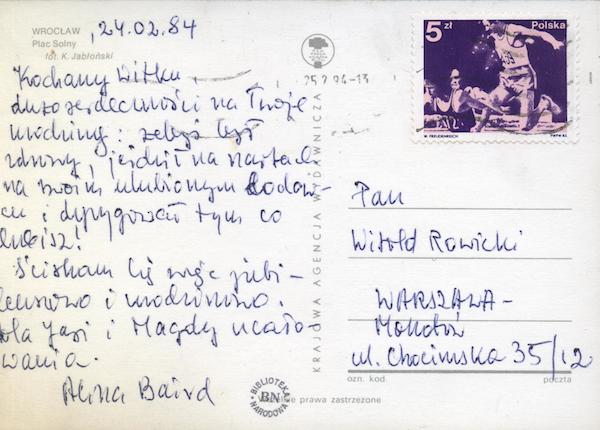 WROCŁAW
Plac Solny
fot. K. Jabłoński
24.02.84
Kochany Witku
dużo serdeczności na Twoje
urodziny: żebyś był
zdrowy, jeździł na nartach
na swoim ulubionym
i dyrygował tym co
lubisz!
Ściskam Cię więc jubi-
leuszowo i urodzinowo.
Dla Jasi i Magdy ucało-
wania.
Alina Baird
KRAJOWA AGENCJA WYDAWNICZA
25.2.84-13
5 zł
Polska
H. FREUDENREICH
PWPW 83
Pan
Witold Rowicki
WARSZAWA -
Mokotów
ul. Chocimska 35/12
ozn. kod.
poczta
BIBLIOTEKA
BN
NARODOWA
Wszelkie prawa zastrzeżone